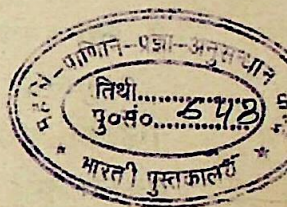 महर्षि-पाणिनि-प्रज्ञा-अनुसन्धान
तिथी..............
पु०सं०... 548
* भारती पुस्तकालय *